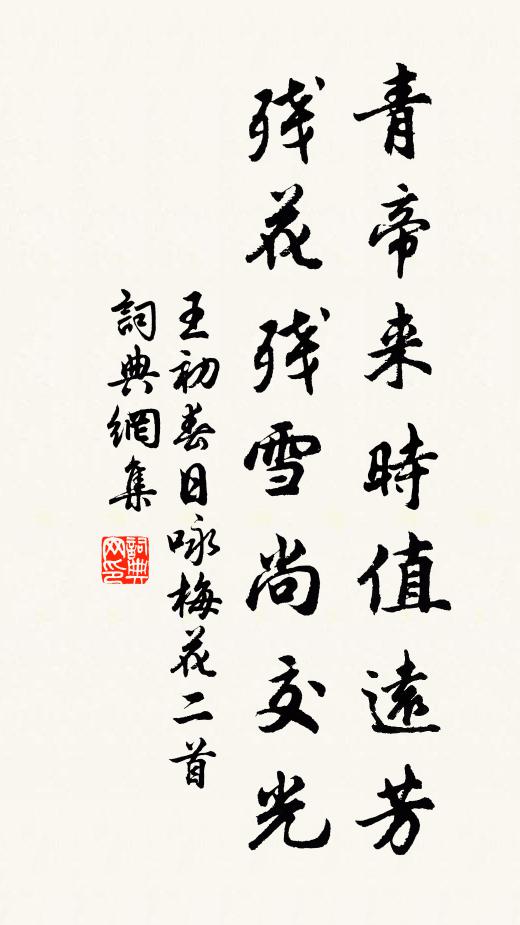 青帝来時值遠芳
残花残雪尚交光
王初春日咏梅花二首
詞典網集
詞典网印